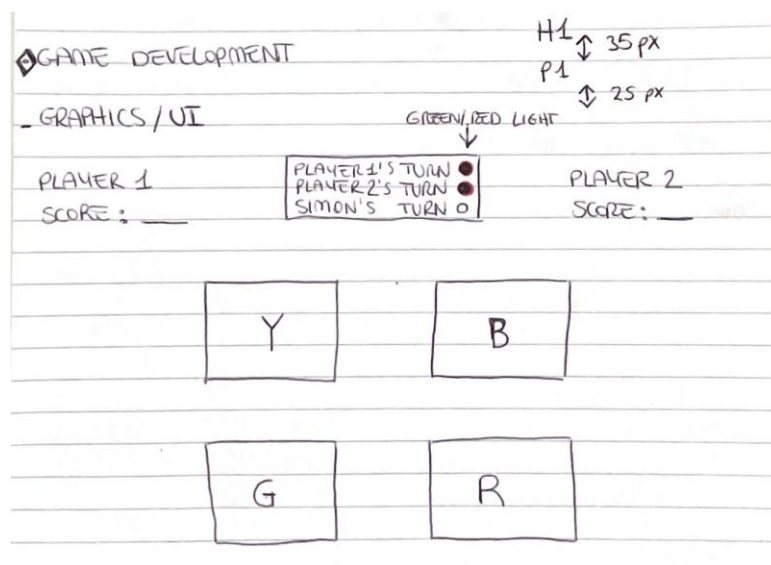 GAME DEVELOPMENT
H1 35 PX
P1
25 PX
- GRAPHICS / UI
GREEN/RED LIGHT
PLAYER 1
SCORE: ___
PLAYER 1'S TURN
PLAYER 2'S TURN
SIMON'S TURN
PLAYER 2
SCORE: ___
Y B
G R